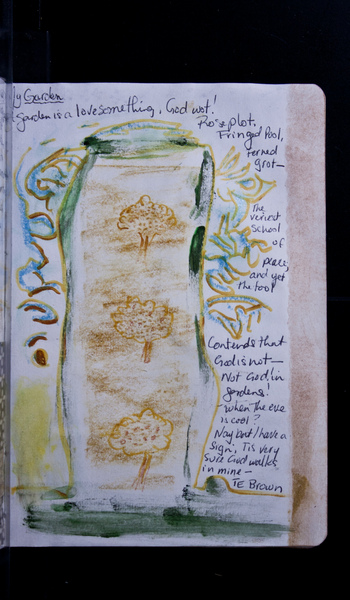 My Garden
garden is a lovesome thing, God wot!
Rose plot,
Fringed Pool,
Ferned
grot—
The
veriest
school
of
peace,
and yet
the fool
Contends that
God is not—
Not God! in
gardens!
when the eve
is cool?
Nay but I have a
sign, Tis very
sure God walks
in mine—
TE Brown